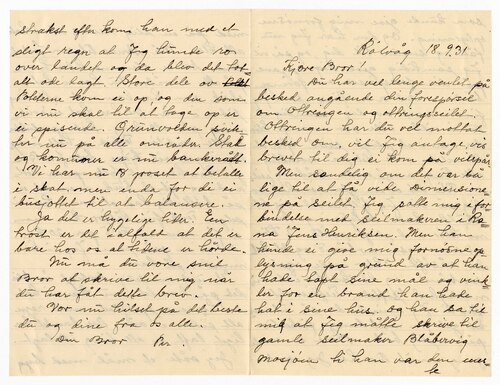 Rølvåg 18.9.31
Kjære Bror!
Du har vel lenge ventet på
besked angående din forespørsel
om Ottringen og ottringseilet.
Ottringen har du vel mottat
besked om, vil jeg antage, vis
brevet til dig ei kom på
Men sandelig om det var
lige til at få vide Dimensione
ne på seilet Jeg satte mig i for
bindelse med seilmakeren i Ra
na Jens Henriksen. Men han
kunde ei give mig fornøine op
lysning på grund av at han
hade tapt sine mål og vink
ler for en brand han hade
hat i sine hus. og han sa til
mig at Jeg måtte skrive til
gamle seilmaker Blåbervig
Mosjøen ti han var den
straks efter kom han med et
sligt regn at Jeg kunde ro
over landet og da blev det
alt øde lagt. Store dele av
Poldterne kom ei op, og den som
vi nu skal til at tage op er
ei spisende. Grunvolden
ter nu på alle områder. Stat
og kommuner er nu bankeråt.
Vi har nu 18 proset at betalle
i skat, men enda for de ei
busjettet til at balansere.
Ja det er hyggelige tider. En
trøst er det ialfalt at det er
bare hos os at tiderne er hårde.
Nu må du være snil
Bror at skrive til mig når
du har fåt dette brev.
Vær nu hilset på det beste
du og dine fra os alle.
Din Bror Per.